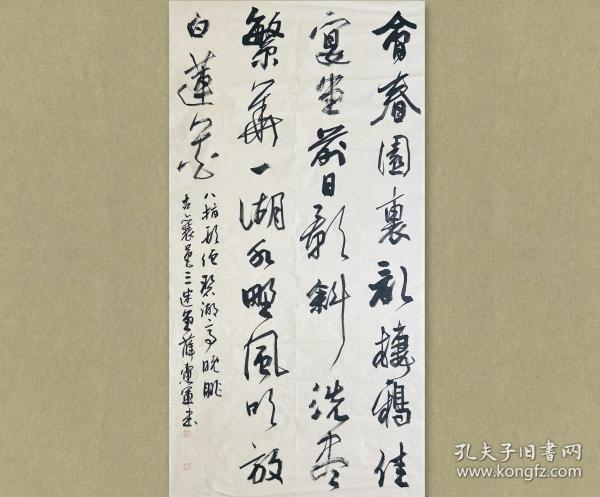 會春園裏亂棲鴉佳
宴堂前日影斜洗盡
繁華一湖水野風吹放
白蓮花
八指頭陀碧湖亭晚眺
古襄
薛憲軍書
孔夫子旧书网
www.kongfz.com